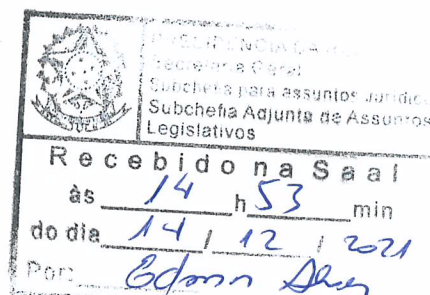 PRESIDÊNCIA DA
Secretaria Geral
Subchefia para assuntos Jurídic
Subchefia Adjunta de Assuntos
Legislativos
Recebido na Saal
às 14 h 53 min
do dia 14 / 12 / 2021
Por: